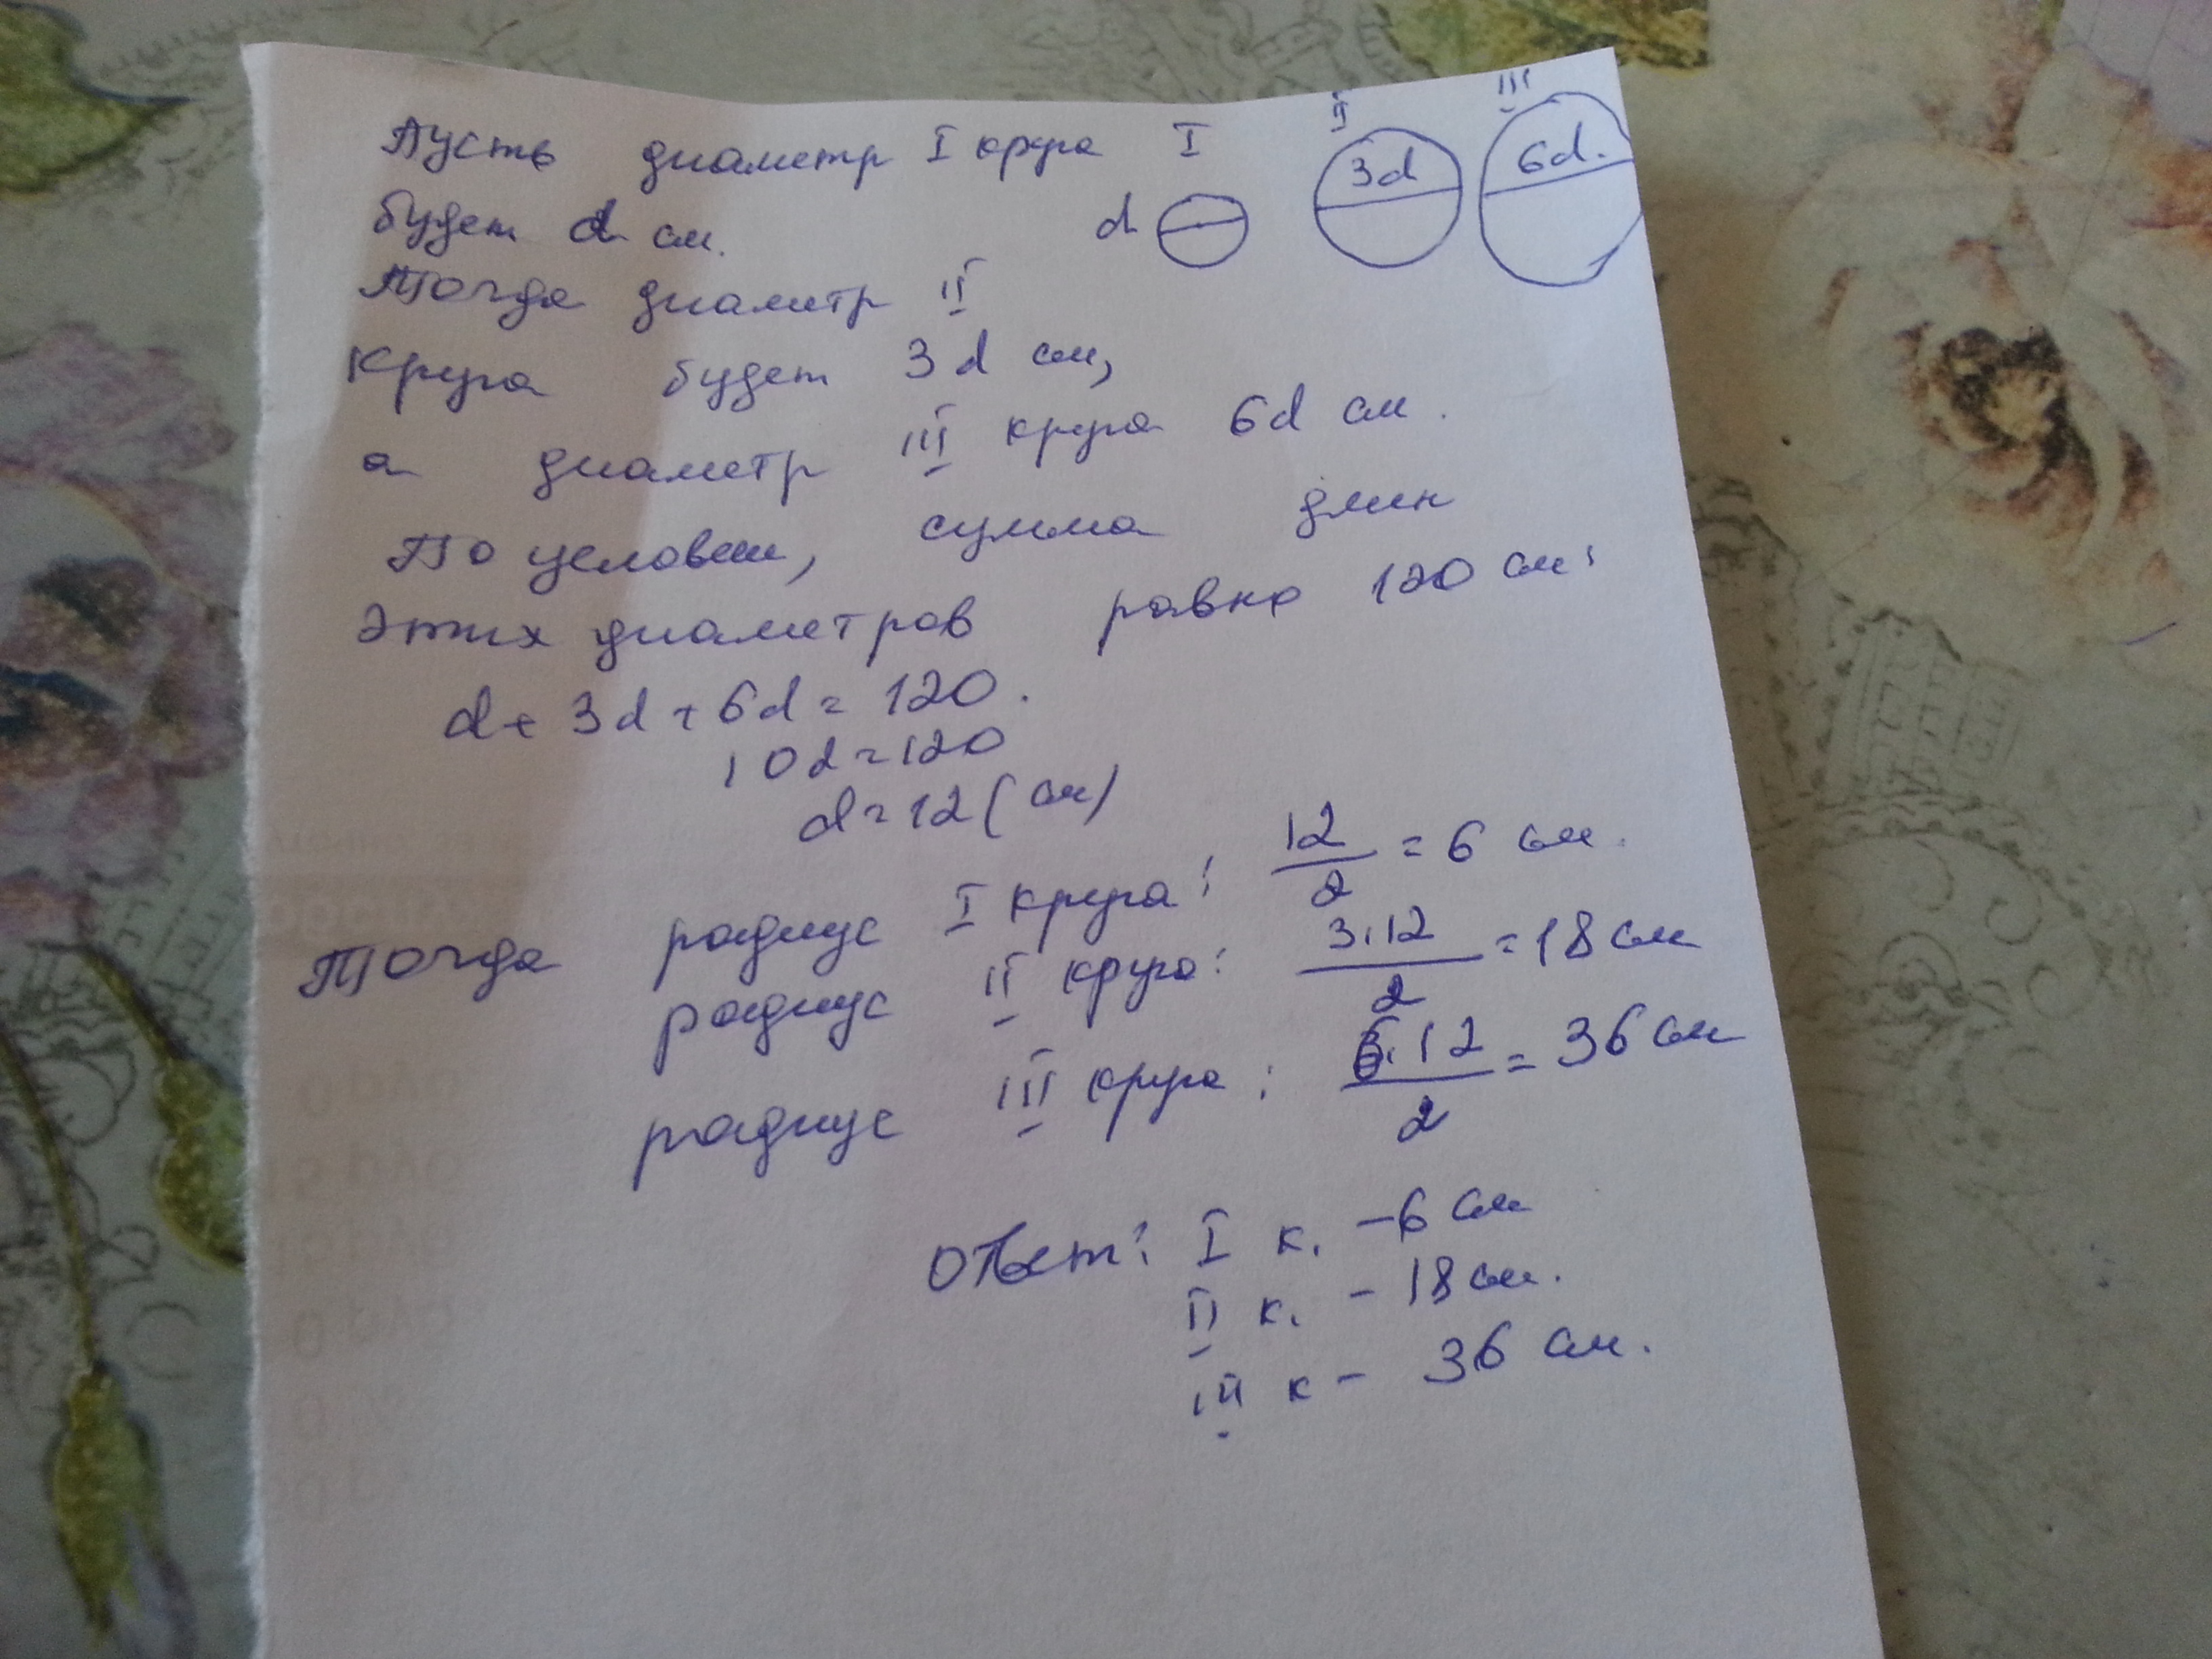 Пусть диаметр I круга I II III
будет d см. d 3d 6d.
Тогда диаметр II
круга будет 3d см,
а диаметр III круга 6d см.
По условию, сумма длин
этих диаметров равна 120 см:
d + 3d + 6d = 120.
10d = 120
d = 12 (см)
Тогда радиус I круга: 12/2 = 6 см.
радиус II круга: 3·12/2 = 18 см
радиус III круга: 6·12/2 = 36 см
Ответ: I к. – 6 см
II к. – 18 см.
III к – 36 см.